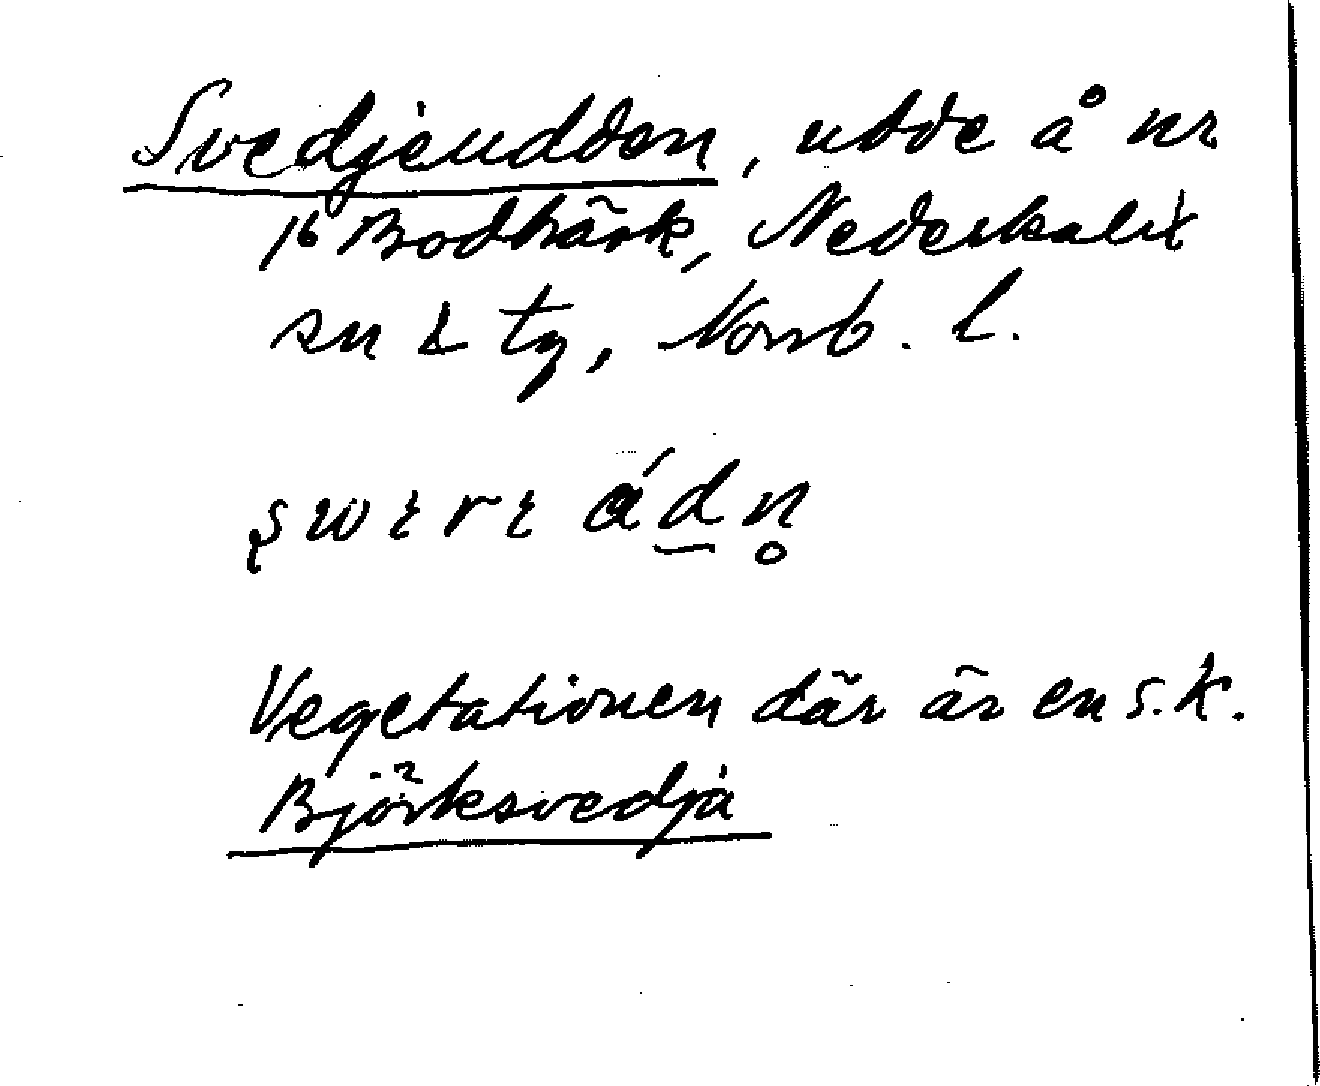 Svedjeudden, udde å nr
16 Bodträsk, Nederkalix
sn & tg, Norrb. l.
Vegetationen där är en s.k.
Björksvedja